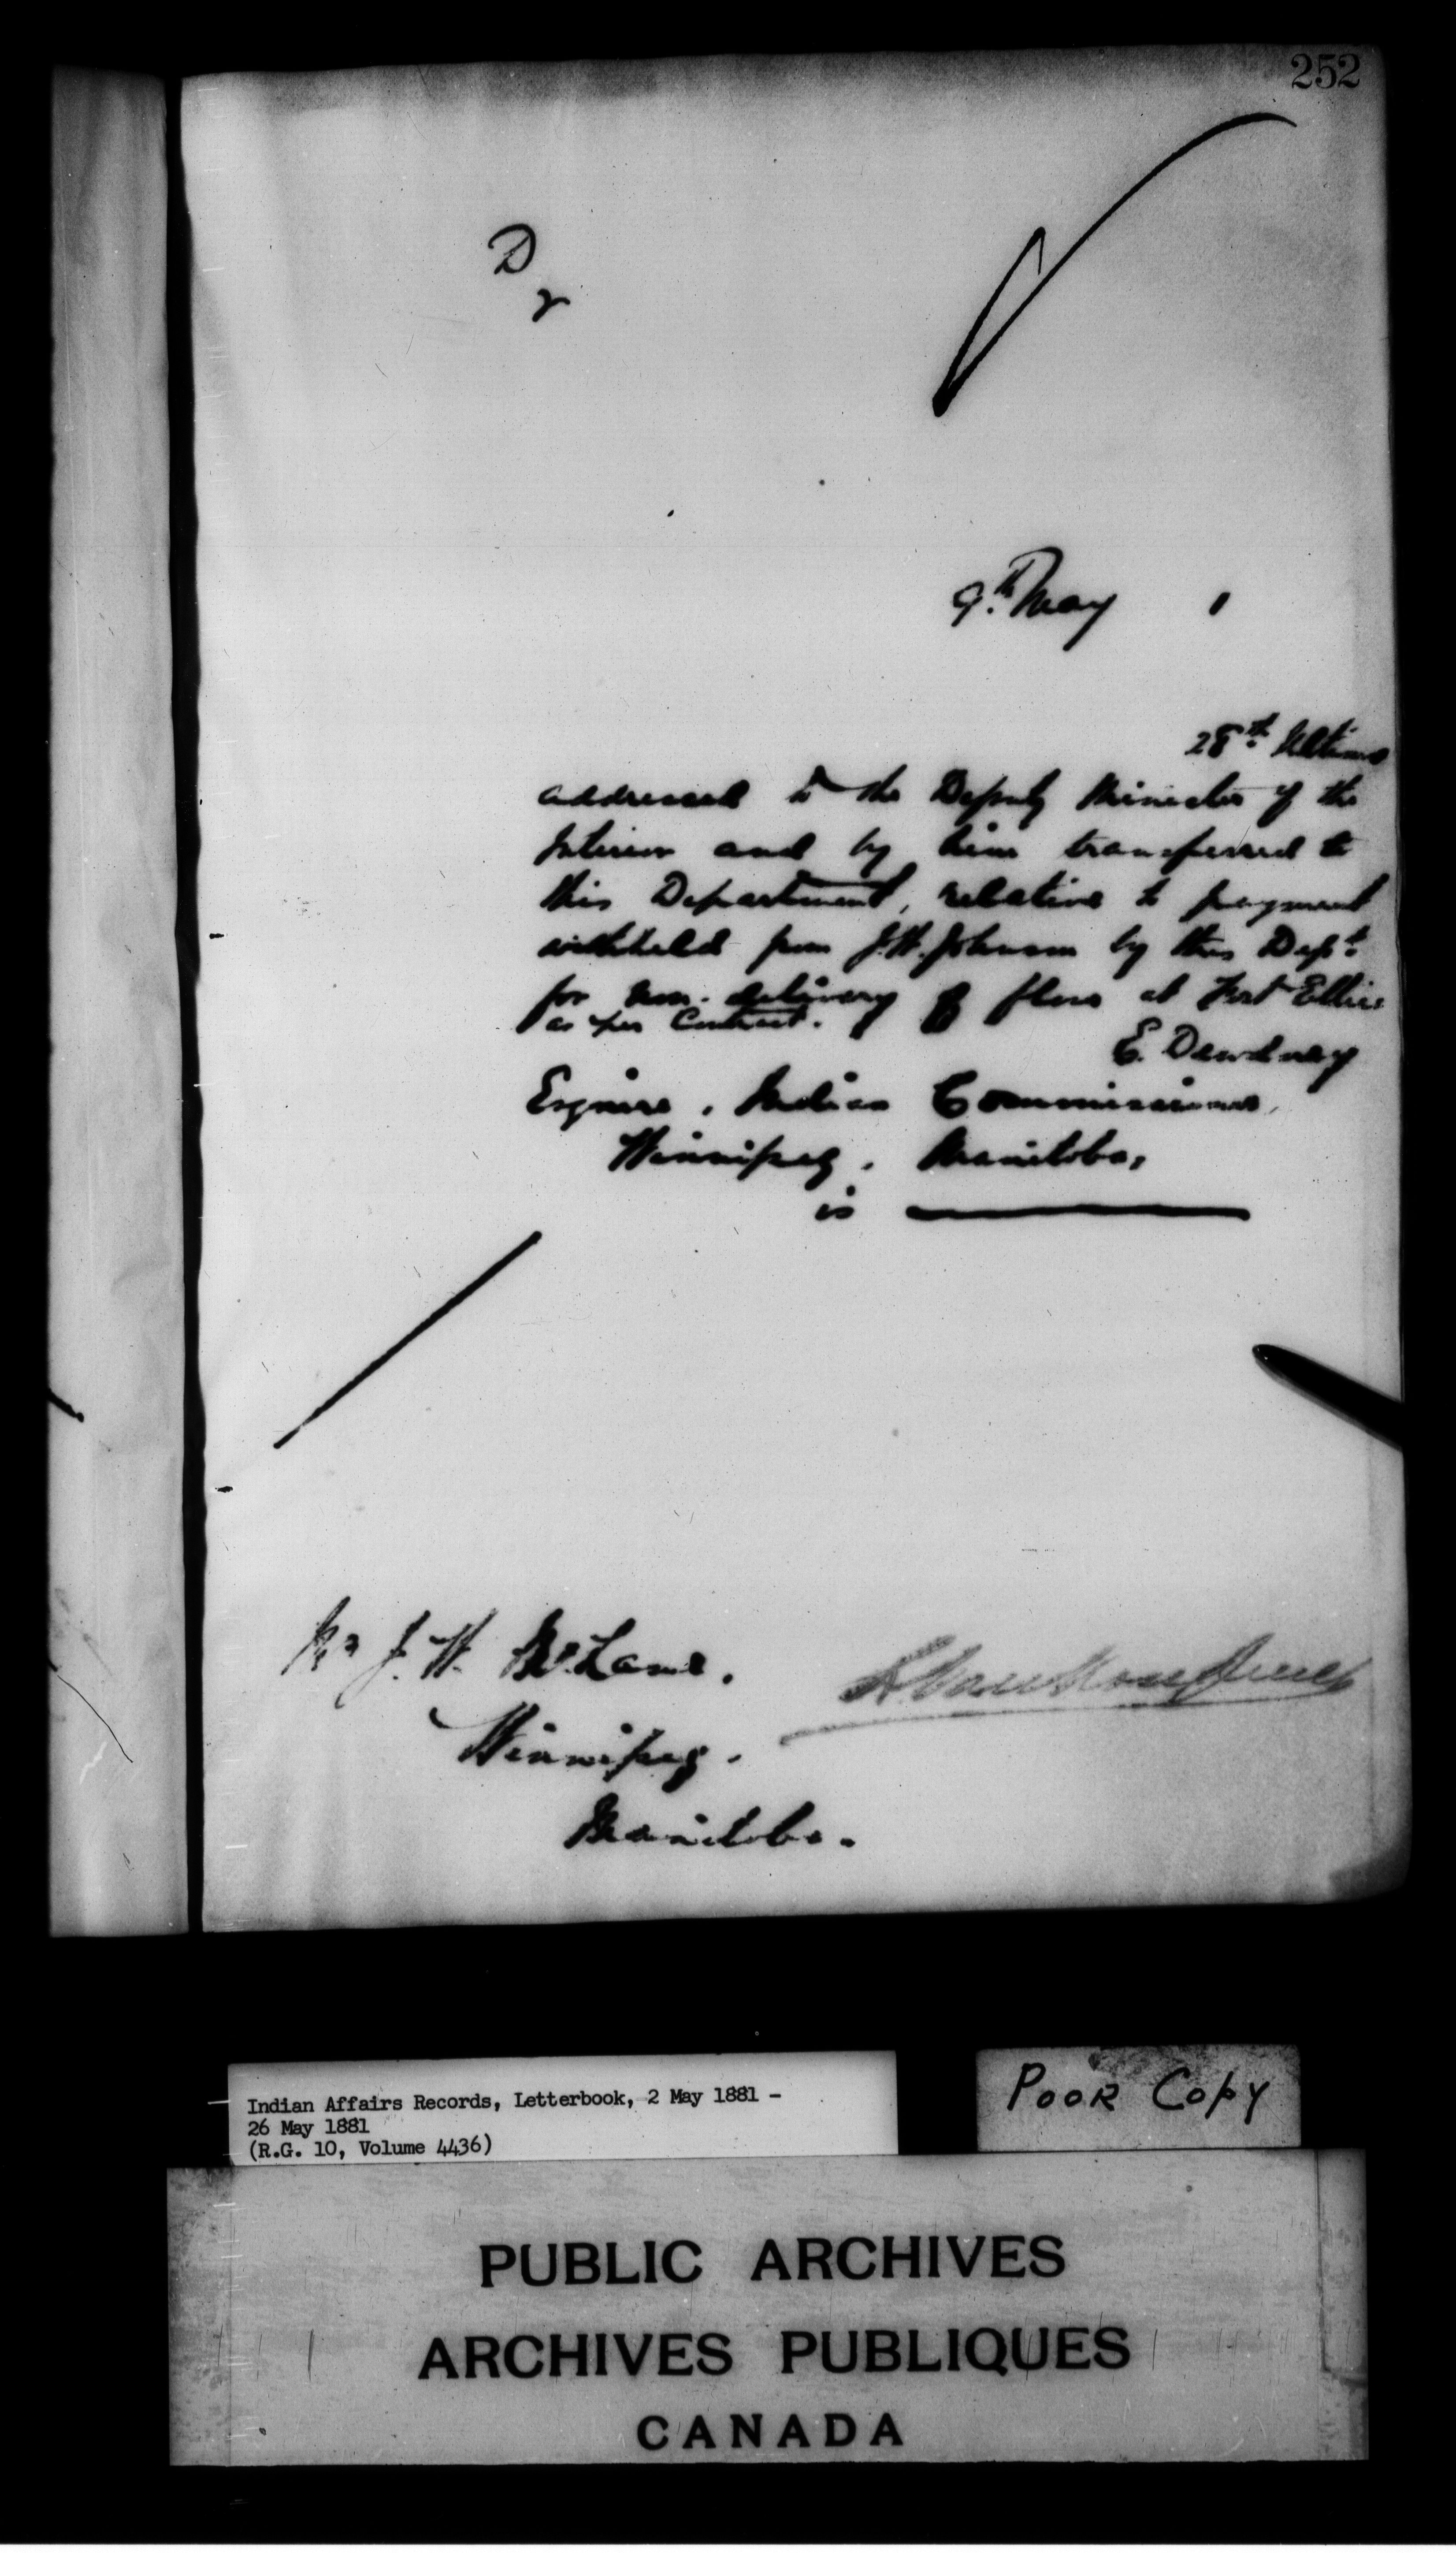 252
D
r
9th May 1
28th Ultimo
addressed to the Deputy Minister of the
Interior and by him transferred to
this Department, relative to payment
withheld from J.W. Johnson by this Dept
for non-delivery of flour at Fort Ellice
as per Contract.
E. Dewdney
Esquire, Indian Commissioner,
Winnipeg, Manitoba,
is
Mr J. W. McLane,
L. VanKoughnet
Winnipeg.
Manitoba.
Indian Affairs Records, Letterbook, 2 May 1881 -
26 May 1881
(R.G. 10, Volume 4436)
POOR COPY
PUBLIC ARCHIVES
ARCHIVES PUBLIQUES
CANADA